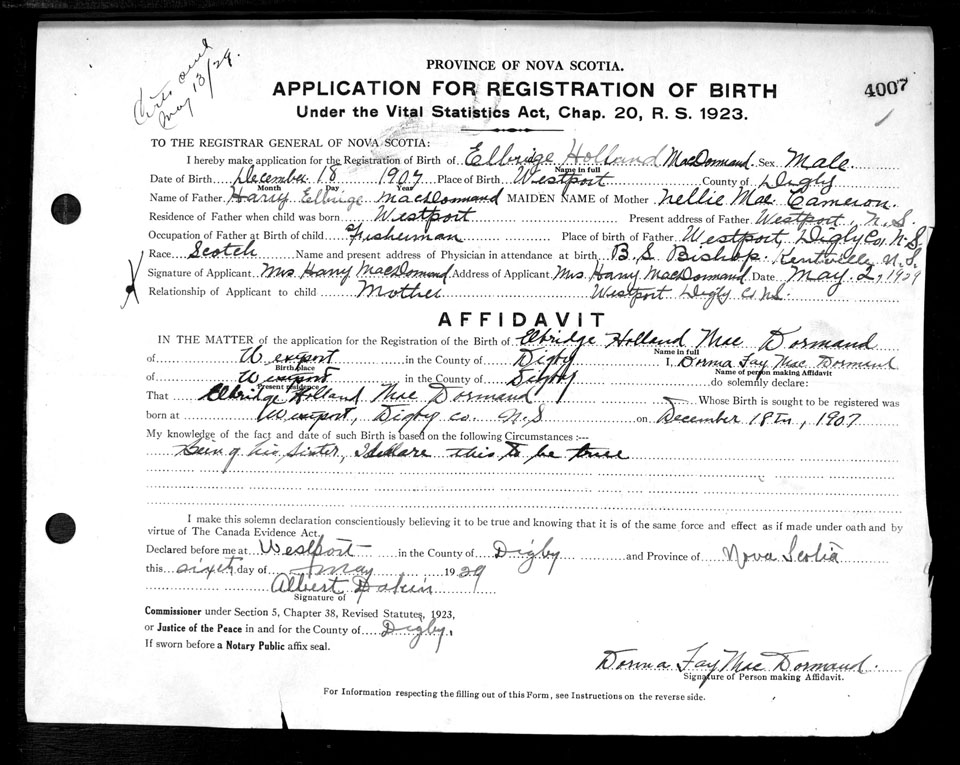 Certs and
May 13/29.
PROVINCE OF NOVA SCOTIA.
APPLICATION FOR REGISTRATION OF BIRTH
4007
Under the Vital Statistics Act, Chap. 20, R. S. 1923.
TO THE REGISTRAR GENERAL OF NOVA SCOTIA:
I hereby make application for the Registration of Birth of Elbridge Holland MacDormand Sex Male
Name in full
Date of Birth December 18 1907 Place of Birth Westport County of Digby
Month Day Year
Name of Father Harry Elbridge MacDormand MAIDEN NAME of Mother Nellie Mae Cameron
Residence of Father when child was born Westport Present address of Father Westport, N.S.
Occupation of Father at Birth of child Fisherman Place of birth of Father Westport, Digby Co, N.S.
Race Scotch Name and present address of Physician in attendance at birth B. S. Bishop. Kentville N.S.
Signature of Applicant Mrs Harry MacDormand Address of Applicant Mrs. Harry MacDormand Date May 2, 1929
Relationship of Applicant to child Mother Westport Digby Co N.S.
AFFIDAVIT
IN THE MATTER of the application for the Registration of the Birth of Elbridge Holland Mac Dormand
Name in full
of Westport in the County of Digby I, Dorma Fay Mac Dormand
Birth place Name of person making Affidavit
of Westport in the County of Digby do solemnly declare:
Present residence
That Elbridge Holland Mac Dormand Whose Birth is sought to be registered was
born at Westport, Digby co. N.S on December 18th, 1907
My knowledge of the fact and date of such Birth is based on the following Circumstances :--
Being his sister, I declare this to be true
I make this solemn declaration conscientiously believing it to be true and knowing that it is of the same force and effect as if made under oath and by
virtue of The Canada Evidence Act.
Declared before me at Westport in the County of Digby and Province of Nova Scotia
this sixth day of May 1929
Albert Dakin
Signature of
Commissioner under Section 5, Chapter 38, Revised Statutes, 1923,
or Justice of the Peace in and for the County of Digby,
If sworn before a Notary Public affix seal.
Dorma Fay Mac Dormand.
Signature of Person making Affidavit.
For Information respecting the filling out of this Form, see Instructions on the reverse side.